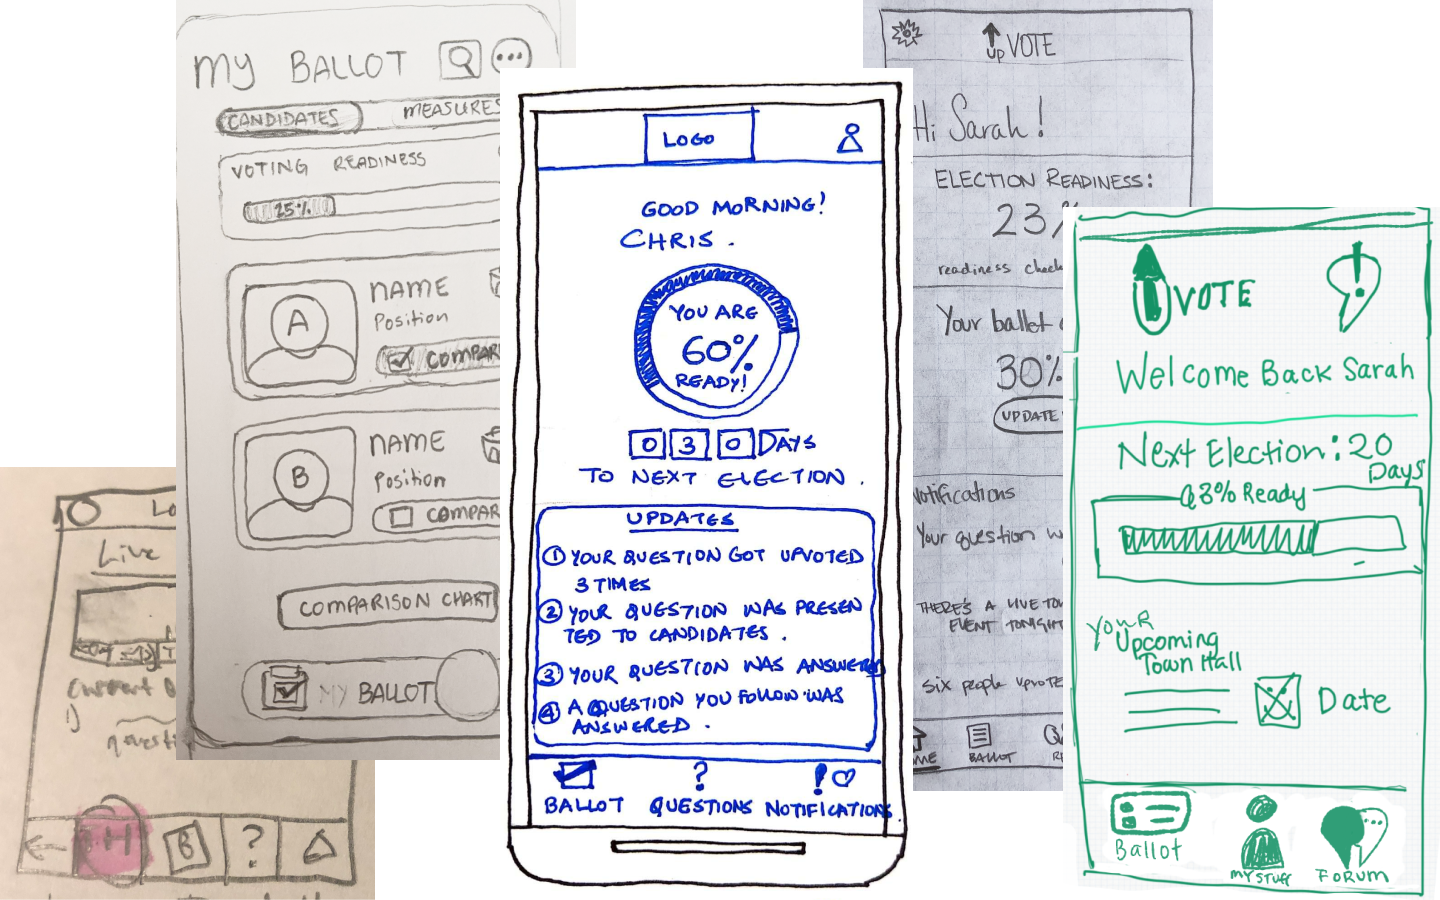 MY BALLOT
CANDIDATES MEASURES
VOTING READINESS
25%
A
NAME
Position
B
NAME
Position
COMPARISON CHART
MY BALLOT
Live
H B ?
LOGO
GOOD MORNING!
CHRIS.
YOU ARE
60%
READY!
0 3 0 DAYS
TO NEXT ELECTION.
UPDATES
① YOUR QUESTION GOT UPVOTED
3 TIMES
② YOUR QUESTION WAS PRESEN
TED TO CANDIDATES.
③ YOUR QUESTION WAS ANSWERED
④ A QUESTION YOU FOLLOW WAS
ANSWERED.
? !
BALLOT QUESTIONS NOTIFICATIONS
UP VOTE
Hi Sarah!
ELECTION READINESS:
23%
readiness check
Your ballot
30%
UPDATE
Notifications
Your question
THERE'S A LIVE
EVENT TONIGHT
six people
BALLOT
VOTE
!
Welcome Back Sarah
Next Election: 20
Days
% Ready
Your
Upcoming
Town Hall
Date
Ballot
MY STUFF
FORUM